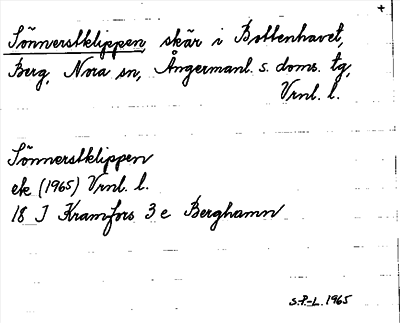 +
Sönnerstklippen skär i Bottenhavet,
Berg, Nora sn, Ångermanl. s. doms. tg,
Vrnl. l.
Sönnerstklippen
ek (1965) Vrnl. l.
18 I Kramfors 3 e Berghamn
S.P.-L. 1965